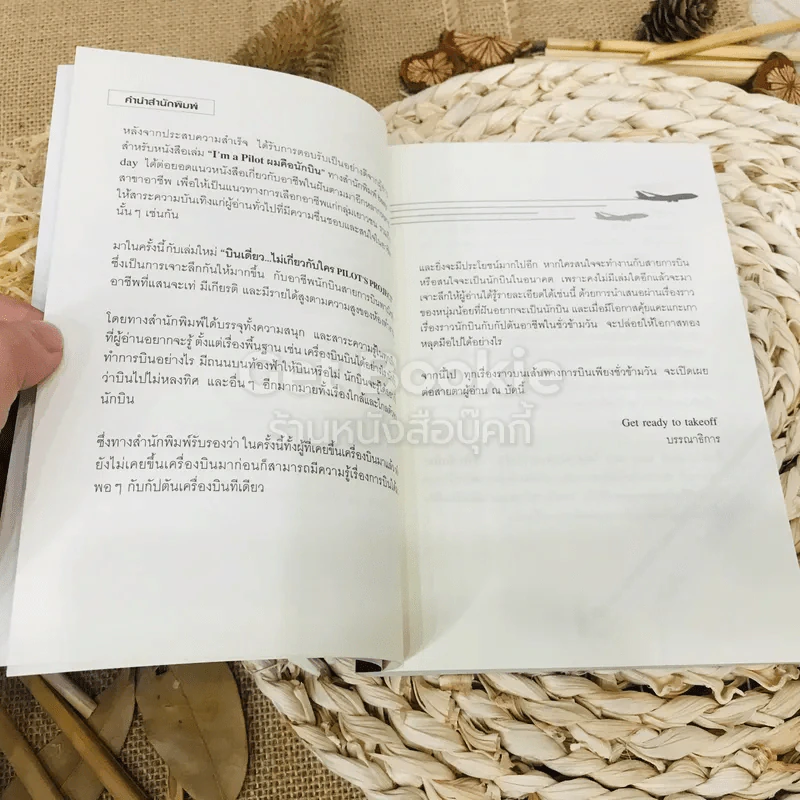 คำนำสำนักพิมพ์
หลังจากประสบความสำเร็จ ได้รับการตอบรับเป็นอย่างดีจากผู้อ่าน
สำหรับหนังสือเล่ม "I'm a Pilot ผมคือนักบิน" ทางสำนักพิมพ์
day ได้ต่อยอดแนวหนังสือเกี่ยวกับอาชีพในฝันตามมาอีกหลากหลาย
สาขาอาชีพ เพื่อให้เป็นแนวทางการเลือกอาชีพแก่กลุ่มเยาวชน
ให้สาระความบันเทิงแก่ผู้อ่านทั่วไปที่มีความชื่นชอบและสนใจในอาชีพ
นั้นๆ เช่นกัน
มาในครั้งนี้กับเล่มใหม่ "บินเดี่ยว...ไม่เกี่ยวกับใคร PILOT'S PROJECT
ซึ่งเป็นการเจาะลึกกันให้มากขึ้น กับอาชีพนักบินสายการบินพาณิชย์
อาชีพที่แสนจะเท่ มีเกียรติ และมีรายได้สูงตามความสูงของท้องฟ้า
โดยทางสำนักพิมพ์ได้บรรจุทั้งความสนุก และสาระความรู้
ที่ผู้อ่านอยากจะรู้ ตั้งแต่เรื่องพื้นฐาน เช่น เครื่องบินบินได้อย่างไร
ทำการบินอย่างไร มีถนนบนท้องฟ้าให้บินหรือไม่ นักบินจะรู้ได้
ว่าบินไปไม่หลงทิศ และอื่นๆ อีกมากมายทั้งเรื่องใกล้และไกลตัว
นักบิน
ซึ่งทางสำนักพิมพ์รับรองว่า ในครั้งนี้ทั้งผู้ที่เคยขึ้นเครื่องบินมาแล้ว
ยังไม่เคยขึ้นเครื่องบินมาก่อนก็สามารถมีความรู้เรื่องการบินได้
พอๆ กับกัปตันเครื่องบินทีเดียว
และยิ่งจะมีประโยชน์มากไปอีก หากใครสนใจจะทำงานกับสายการบิน
หรือสนใจจะเป็นนักบินในอนาคต เพราะคงไม่มีเล่มใดอีกแล้วจะมา
เจาะลึกให้ผู้อ่านได้รู้รายละเอียดได้เช่นนี้ ด้วยการนำเสนอผ่านเรื่องราว
ของหนุ่มน้อยที่ฝันอยากจะเป็นนักบิน และเมื่อมีโอกาสคุ้ยแคะแกะเกา
เรื่องราวนักบินกับกัปตันอาชีพในชั่วข้ามวัน จะปล่อยให้โอกาสทอง
หลุดมือไปได้อย่างไร
จากนี้ไป ทุกเรื่องราวบนเส้นทางการบินเพียงชั่วข้ามวัน จะเปิดเผย
ต่อสายตาผู้อ่าน ณ บัดนี้
Get ready to takeoff
บรรณาธิการ
ร้านหนังสือบุ๊คกี้